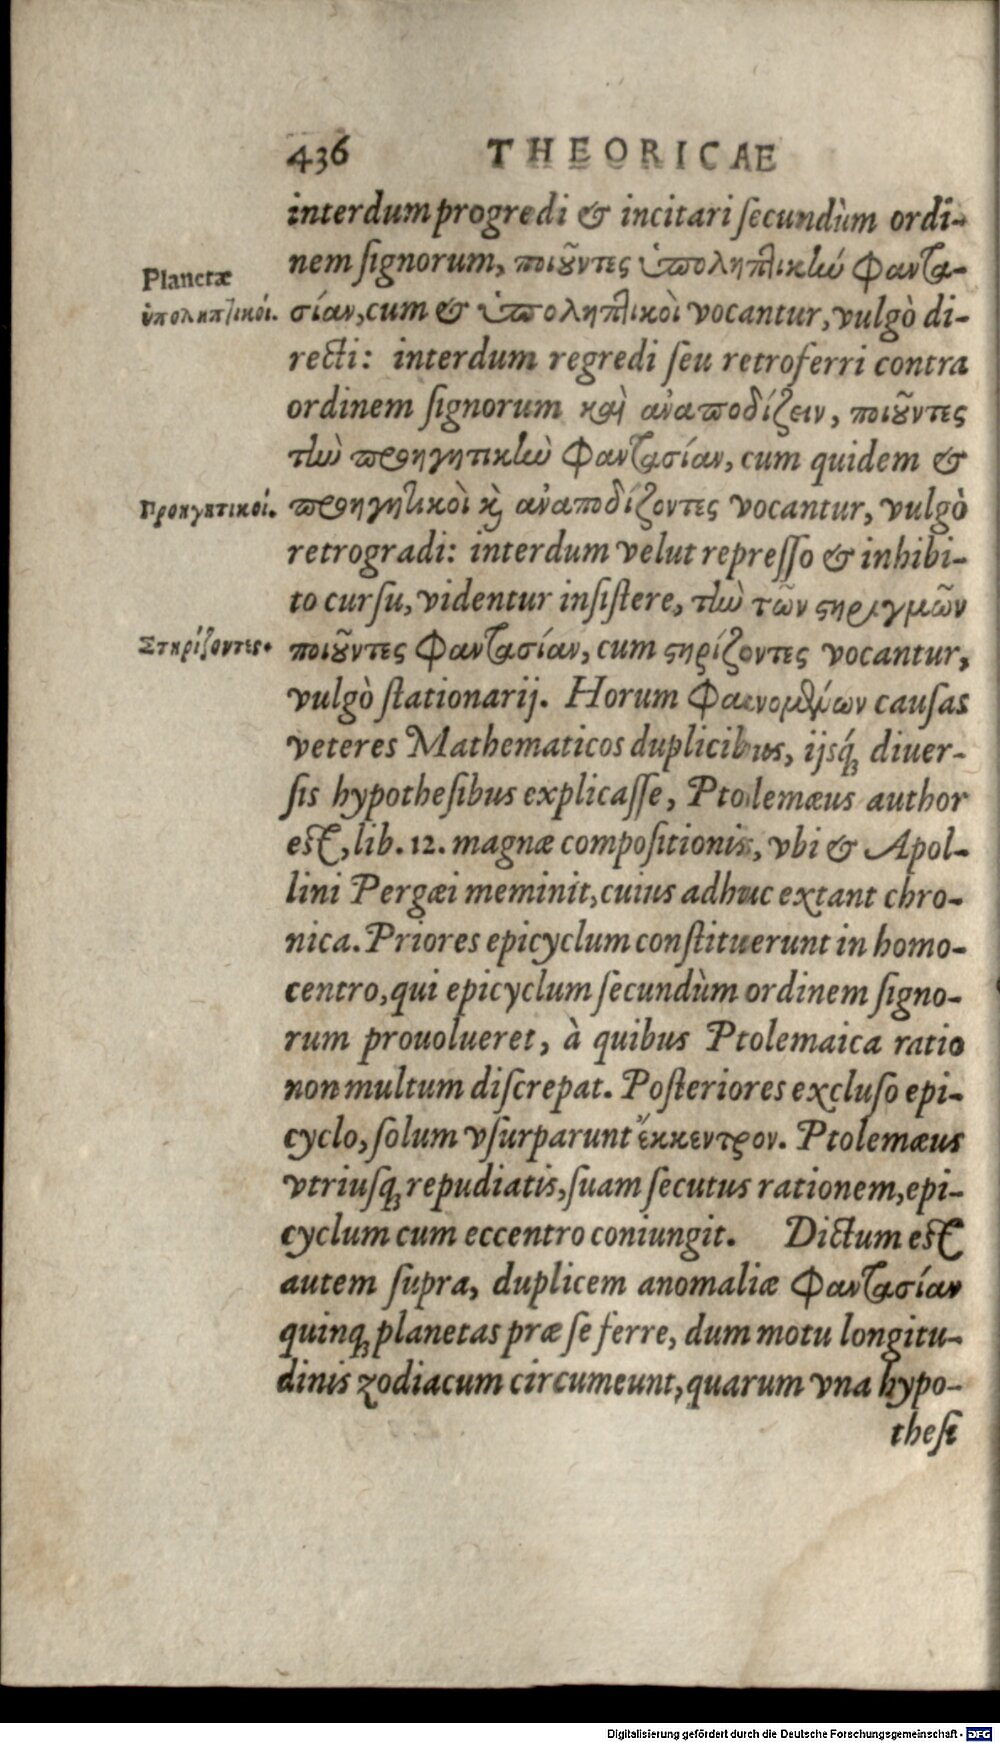 436 THEORICAE
interdum progredi & incitari ſecundùm ordi-
nem ſignorum, ποιοῦντες ὑποληπτικὴν φαντα-
σίαν, cum & ὑποληπτικοὶ vocantur, vulgò di-
recti: interdum regredi ſeu retroferri contra
ordinem ſignorum καὶ ἀναποδίζειν, ποιοῦντες
τὴν προηγητικὴν φαντασίαν, cum quidem &
προηγητικοὶ καὶ ἀναποδίζοντες vocantur, vulgò
retrogradi: interdum velut repreſſo & inhibi-
to curſu, videntur inſiſtere, τὴν τῶν ϛηριγμῶν
ποιοῦντες φαντασίαν, cum ϛηρίζοντες vocantur,
vulgò ſtationarij. Horum φαινομένων cauſas
veteres Mathematicos duplicibus, ijsq́; diuer-
ſis hypotheſibus explicaſſe, Ptolemæus author
eſt, lib. 12. magnæ compoſitionis, vbi & Apol-
lini Pergæi meminit, cuius adhuc extant chro-
nica. Priores epicyclum conſtituerunt in homo-
centro, qui epicyclum ſecundùm ordinem ſigno-
rum prouolueret, à quibus Ptolemaica ratio
non multum diſcrepat. Poſteriores excluſo epi-
cyclo, ſolum vſurparunt ἔκκεντρον. Ptolemæus
vtriuſq; repudiatis, ſuam ſecutus rationem, epi-
cyclum cum eccentro coniungit. Dictum eſt
autem ſupra, duplicem anomaliæ φαντασίαν
quinq; planetas præ ſe ferre, dum motu longitu-
dinis zodiacum circumeunt, quarum vna hypo-
theſi
Planetæ
ὑποληπτικοί.
Προηγητικοί.
Στηρίζοντες.
Digitalisierung gefördert durch die Deutsche Forschungsgemeinschaft - DFG